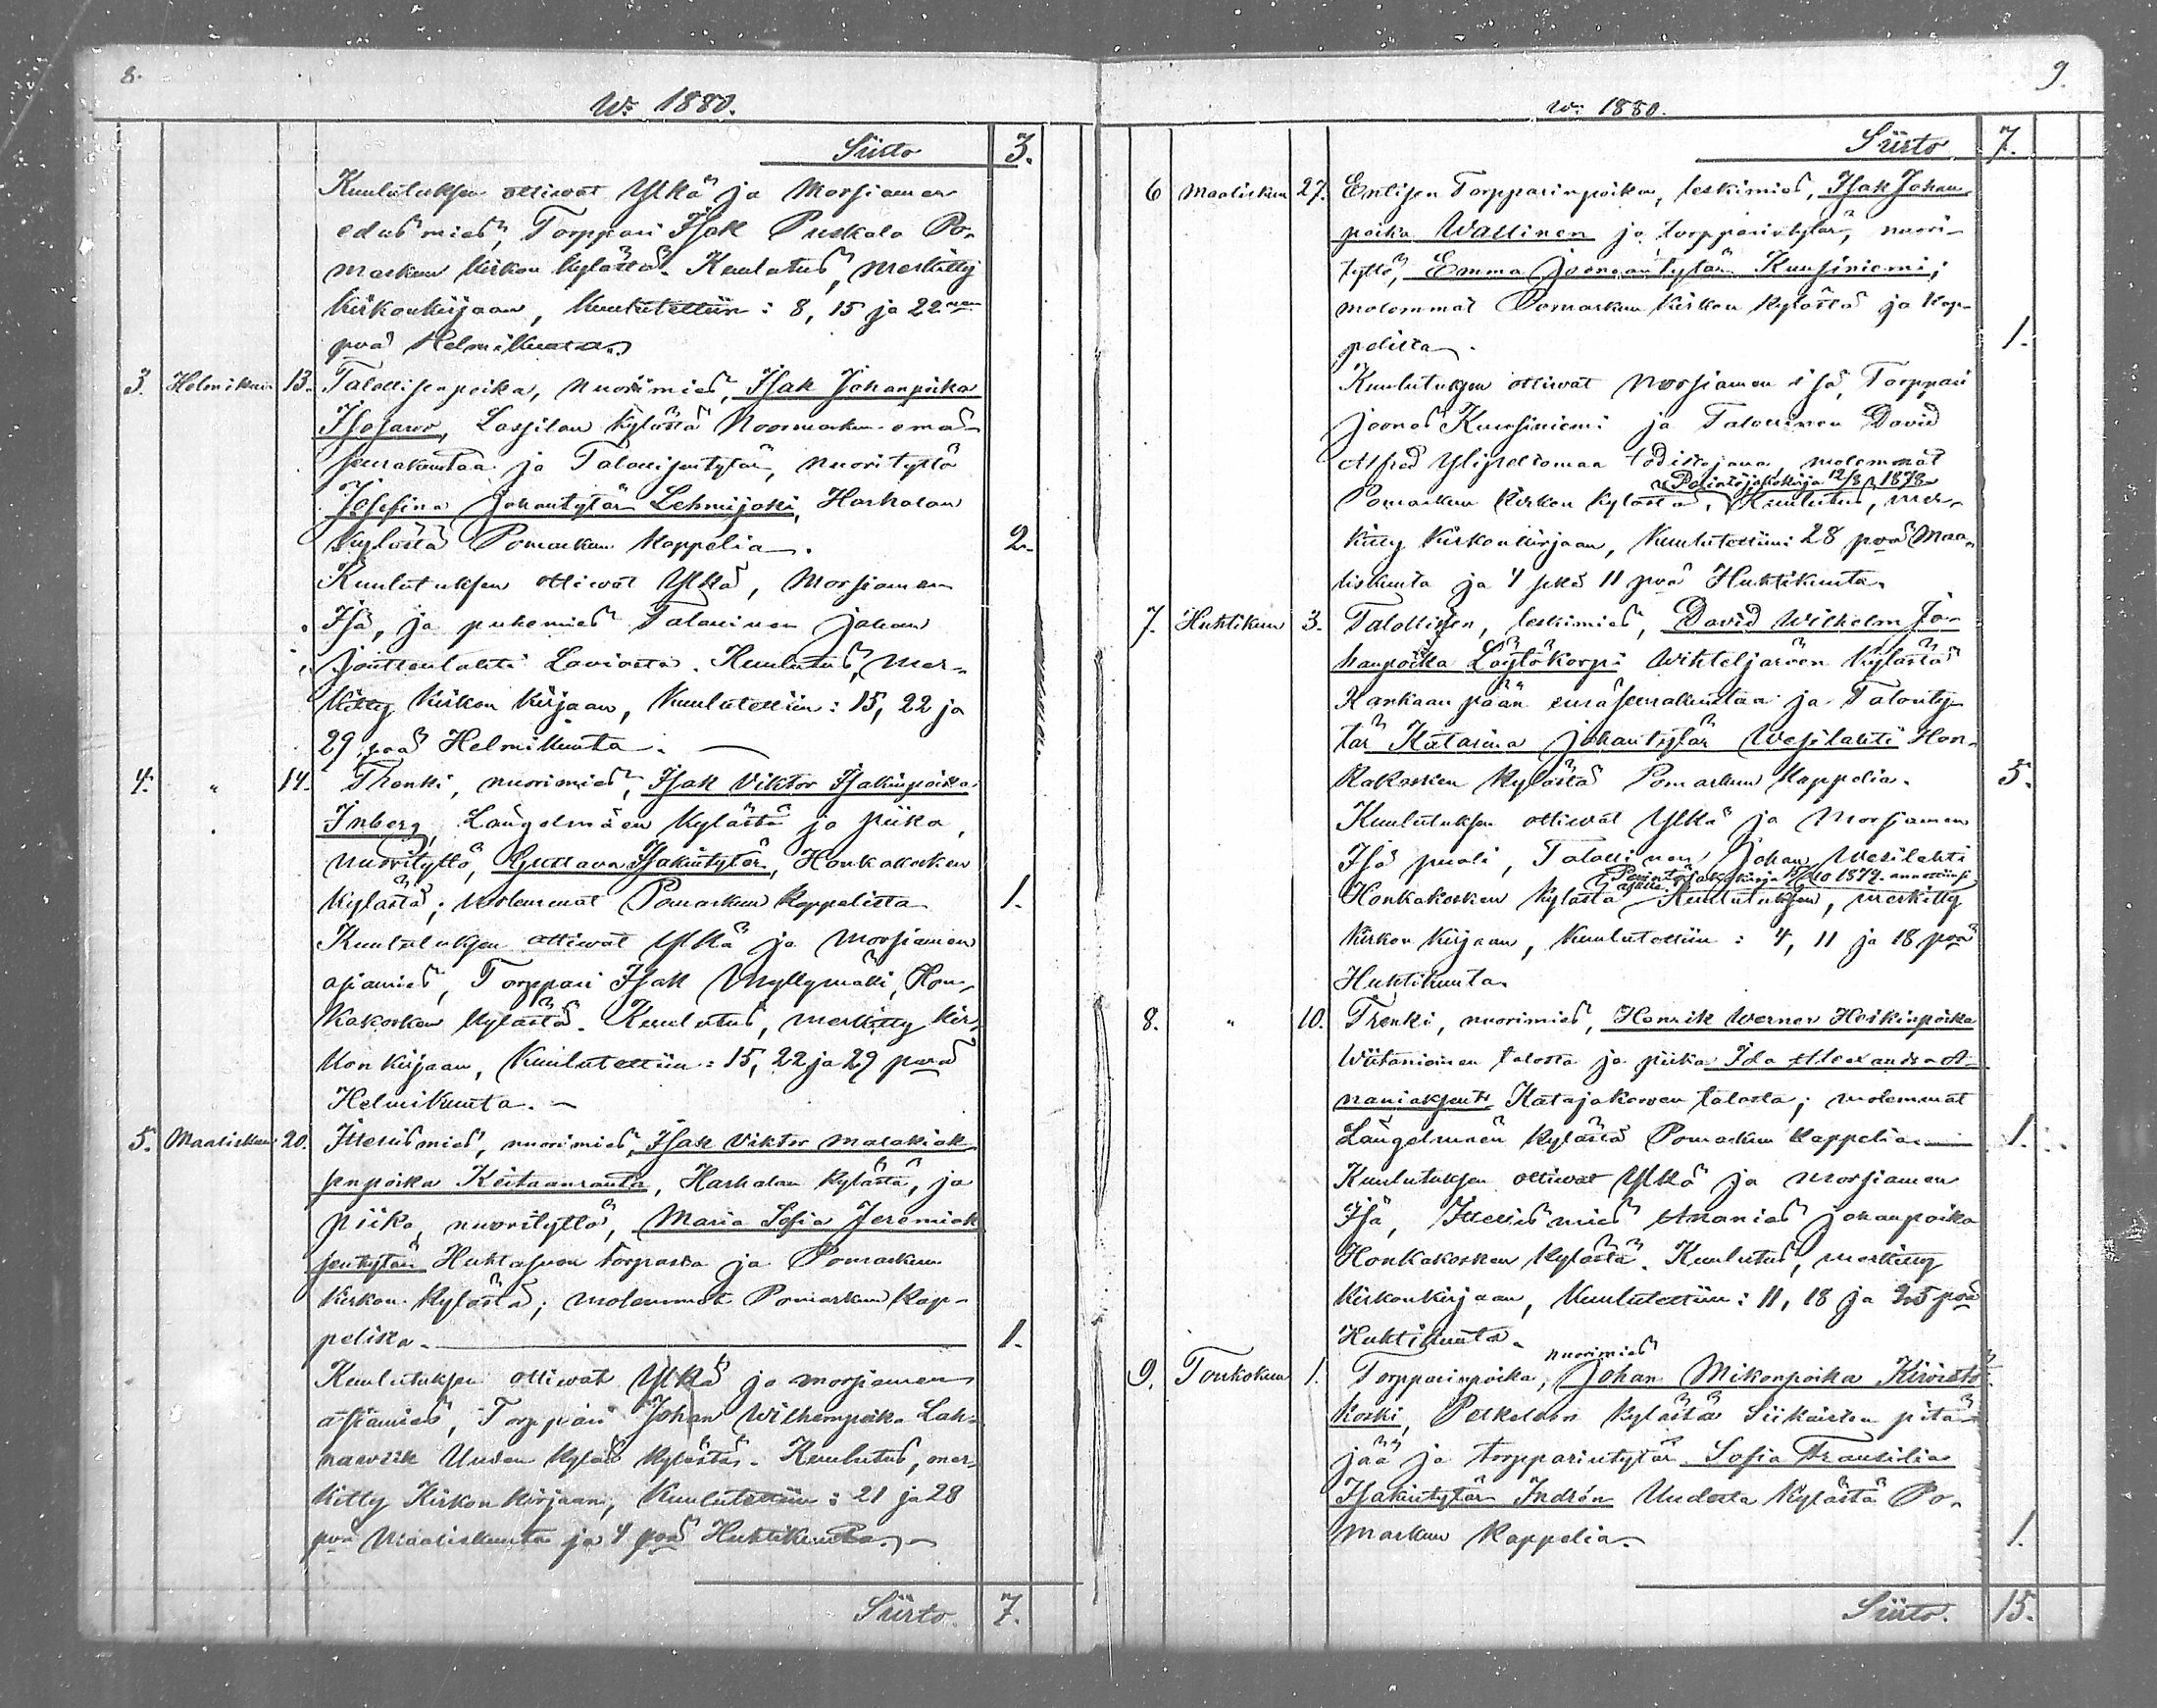 8.
W: 1880.
Siirto 3.
Kuulutuksen ottiwat Ylkä ja Morsiamen
edusmies, Torppari Isak Puskala Po-
markun Kirkon kylästä. Kuulutus, merkitty
Kirkonkirjaan, Kuulutettiin: 8, 15 ja 22
pvä Helmikuuta.
3. Helmikuun 13. Talollisenpoika, nuorimies, Isak Johanpoika
Isosaro, Lassilan kylästä Noormarkun emä-
seurakuntaa ja Talollisentytär, nuorityttö
Josefina Johantytär Lehmijoki, Harhalan
kylästä Pomarkun kappelia. 2.
Kuulutuksen ottiwat Ylkä, Morsiamen
Isä, ja puhemies Talollinen Johan
Jouttenlahti Laviasta. Kuulutus, mer-
kitty Kirkon Kirjaan, Kuulutettiin: 15, 22 ja
29 pvä Helmikuuta.
4. " 14. Threnki, nuorimies, Isak Viktor Isakinpoika
Inberg, Längelmäen kylästä ja piika,
nuorityttö, Gustava Isakintytär, Honkakosken
kylästä; molemmat Pomarkun kappelista 1.
Kuulutuksen ottiwat Ylkä ja morsiamen
asiamies, Torppari Isak Myllymäki, Hon-
kakosken kylästä. Kuulutus, merkitty kir-
kon kirjaan, Kuulutettiin: 15, 22 ja 29 pvä
Helmikuuta.
5. Maaliskuun 20. Itsellismies, nuorimies, Isak Viktor Malakiak-
senpoika Keitaanranta, Harhalan kylästä, ja
piika, nuorityttö, Maria Sofia Jeremiak-
sentytär Huhtasuon torpasta ja Pomarkun
Kirkon kylästä; molemmat Pomarkun kap-
pelista. 1.
Kuulutuksen ottiwat Ylkä ja morsiamen
asiamies, Torppari Johan Wilhempoika Lah-
Uuden kylän kylästä. Kuulutus, mer-
kitty Kirkon kirjaan, Kuulutettiin: 21 ja 28
pvä Maaliskuuta ja 4 pvä Huhtikuuta.
Siirto. 7.
9.
W: 1880.
Siirto 7.
6 Maaliskuun 27. Entisen Torpparinpoika, leskimies, Isak Johan-
poika Wallinen ja torpparintytär, nuori-
tyttö, Emma Joonaantytär Kuusiniemi;
molemmat Pomarkun Kirkon kylästä ja kap-
pelista. 1.
Kuulutuksen ottiwat morsiamen isä, Torppari
Joonas Kuusiniemi ja Talollinen David
Alfred Ylipeltomaa todistajana molemmat
Perintöjakokirja 12/8 1878
Pomarkun Kirkon kylästä. Kuulutus, mer-
kitty Kirkonkirjaan, Kuulutettiin: 28 pvä Maa-
liskuuta ja 4 sekä 11 pvä Huhtikuuta.
7. Huhtikuun 3. Talollisen, leskimies, David Wilhelm Jo-
hanpoika Löytökorpi Wihteljärven kylästä
Kankaanpään emäseurakuntaa ja Talonty-
tär Katarina Johantytär Wesilahti Hon-
kakosken kylästä Pomarkun kappelia. 5.
Kuulutuksen ottiwat Ylkä ja morsiamen
Isä puoli, Talollinen Johan Wesilahti
Perintöjakokirja 15/10 1879. annettiin
Honkakosken kylästä Kuulutuksen, merkitty
Kirkon kirjaan, Kuulutettiin: 4, 11 ja 18 pvä
Huhtikuuta.
8. " 10. Trenki, nuorimies, Henrik Werner Heikinpoika
Wiitaniemen talosta ja piika Ida Alexandra A-
naniaksent. Katajakorven talosta; molemmat
Längelmäen kylästä Pomarkun kappelia. 1.
Kuulutuksen ottiwat Ylkä ja morsiamen
Isä, Itsellismies Ananias Johanpoika
Honkakosken kylästä. Kuulutus, merkitty
Kirkonkirjaan, Kuulutettiin: 11, 18 ja 25 pvä
Huhtikuuta.
nuorimies
9. Toukokuun 1. Torpparinpoika, Johan Mikonpoika Kivistö-
koski, Petkelsson kylästä Siikaisten pitä-
jää ja torpparintytär Sofia Fransilia
Isakintytär Indrén Uudesta kylästä Po-
markun kappelia. 1.
Siirto. 15.